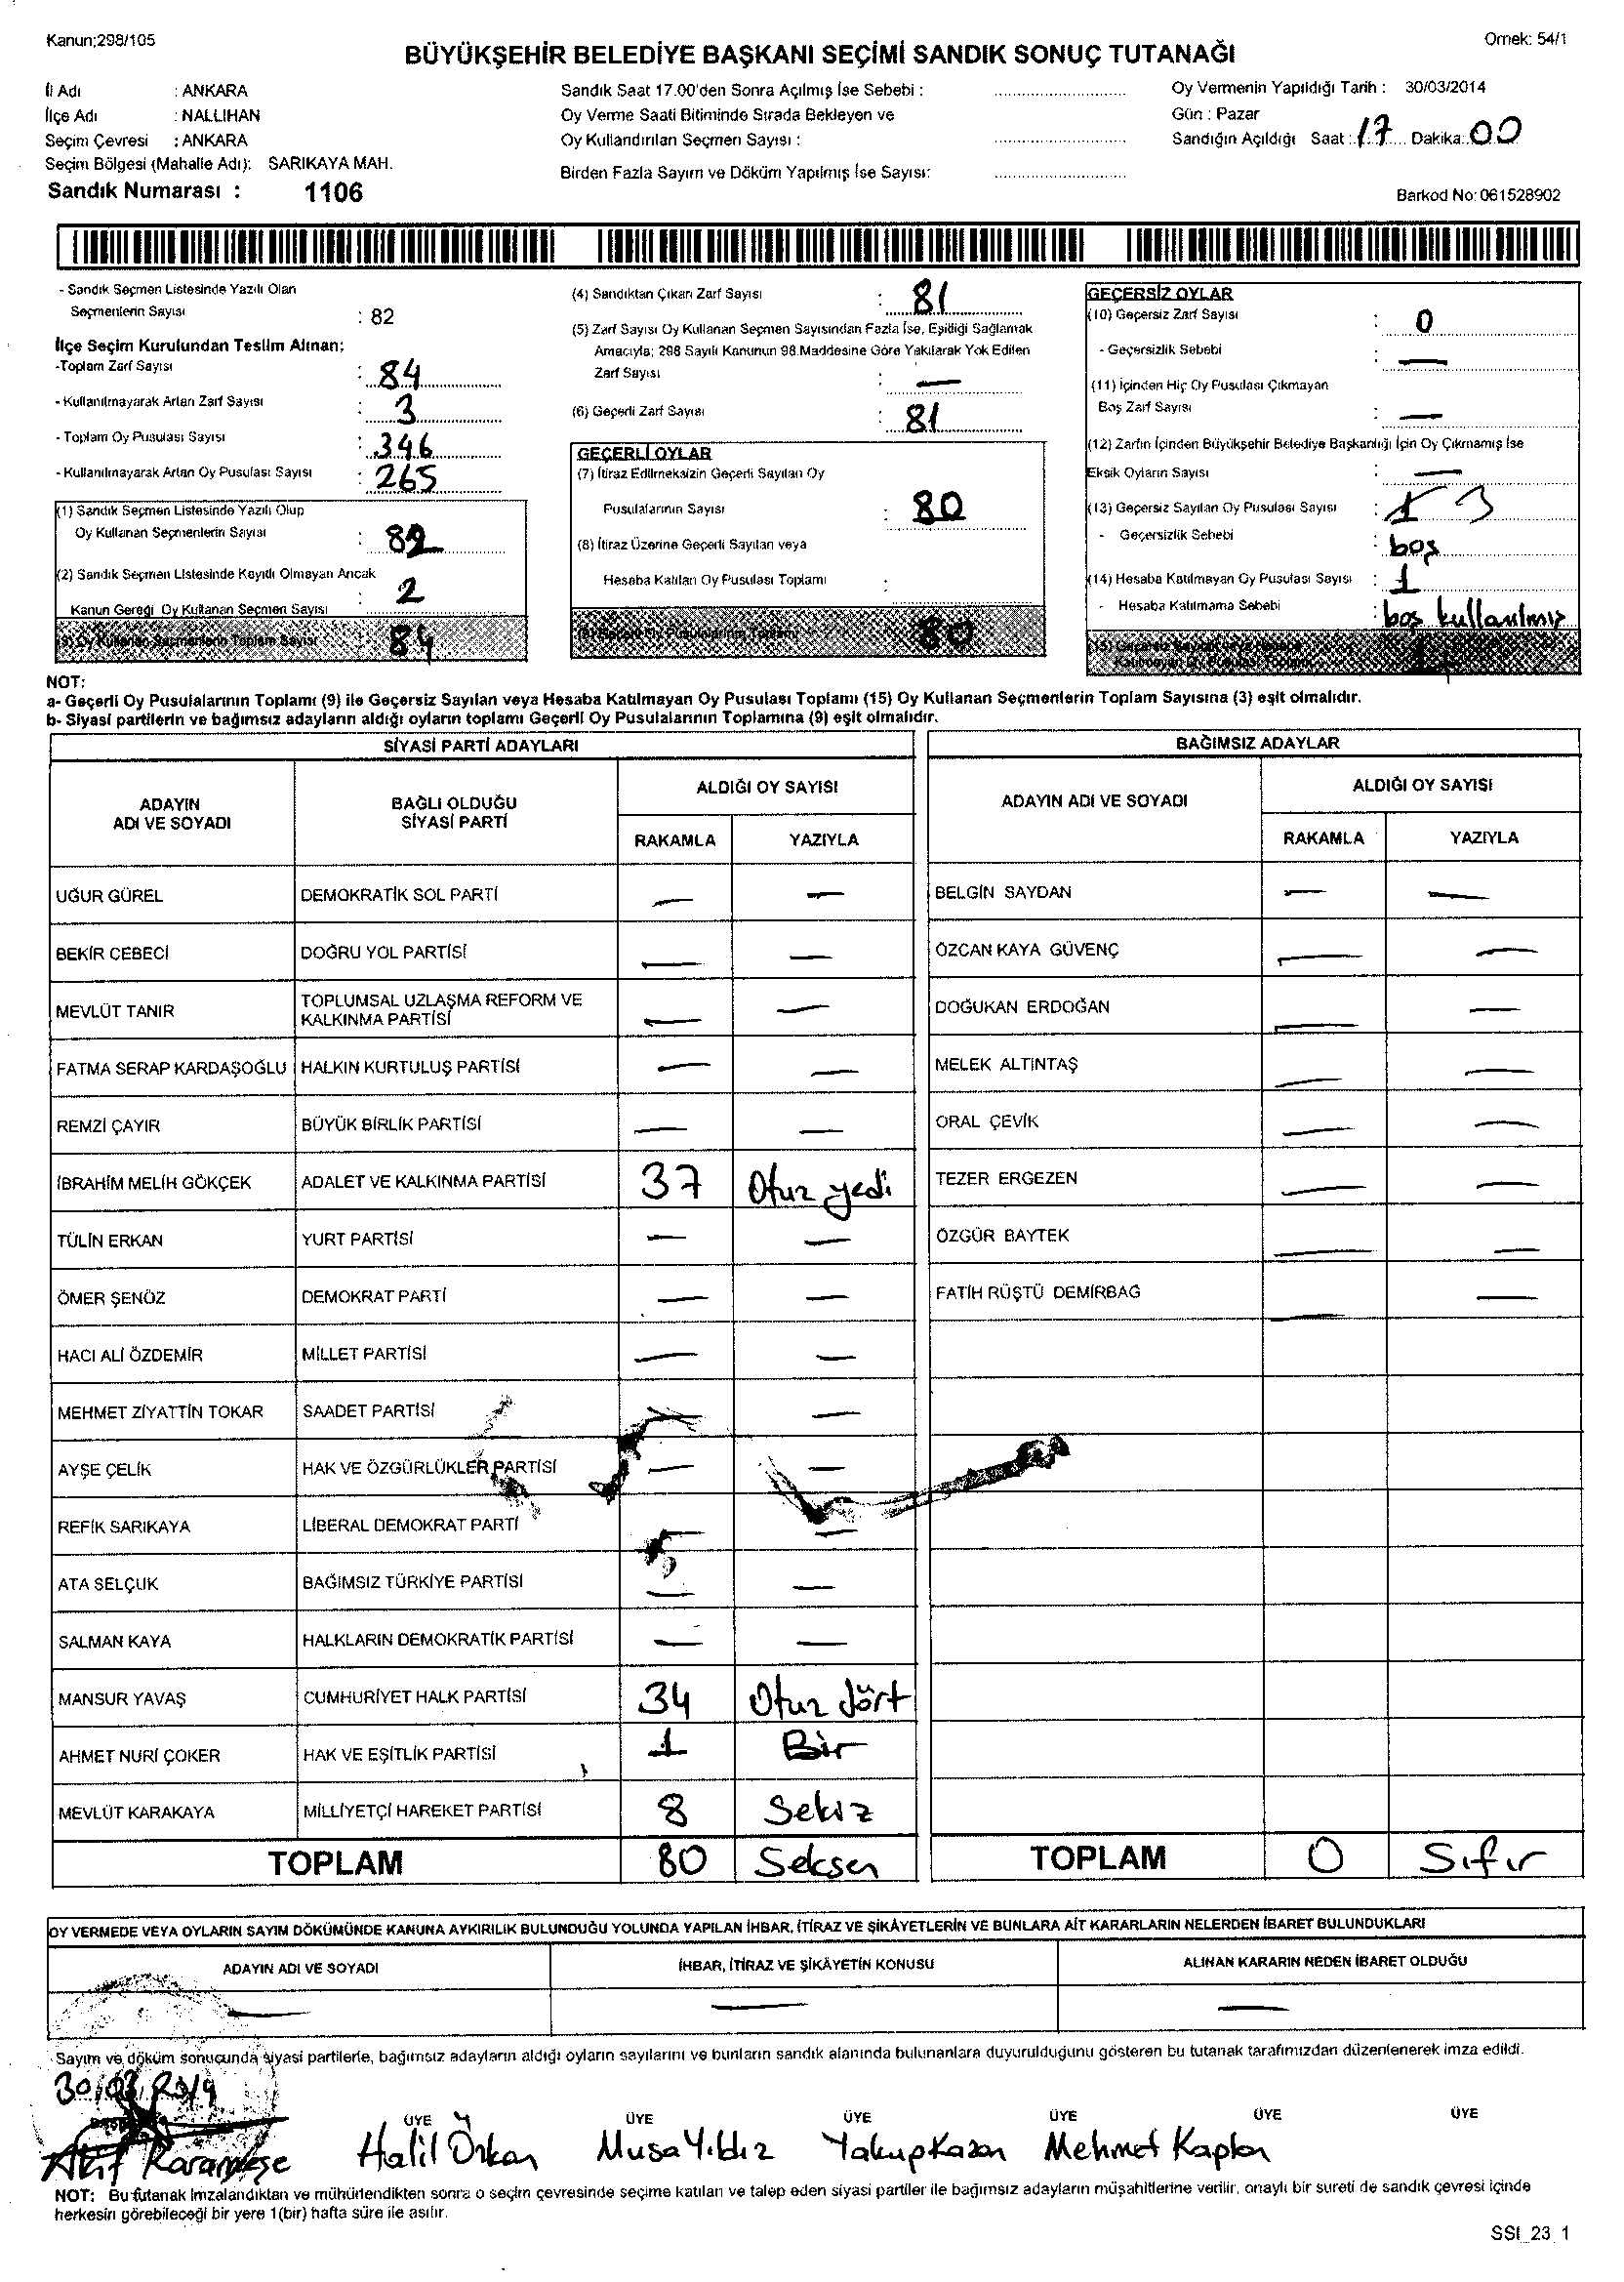 Kanun;298/105
Ornek: 54/1
BÜYÜKŞEHİR BELEDİYE BAŞKANI SEÇİMİ SANDIK SONUÇ TUTANAĞI
İl Adı : ANKARA
İlçe Adı : NALLIHAN
Seçim Çevresi : ANKARA
Seçim Bölgesi (Mahalle Adı): SARIKAYA MAH.
Sandık Numarası : 1106
Sandık Saat 17.00'den Sonra Açılmış İse Sebebi :
Oy Verme Saati Bitiminde Sırada Bekleyen ve
Oy Kullandırılan Seçmen Sayısı :
Birden Fazla Sayım ve Döküm Yapılmış İse Sayısı:
Oy Vermenin Yapıldığı Tarih : 30/03/2014
Gün : Pazar
Sandığın Açıldığı Saat : 17 Dakika: 00
Barkod No: 061528902
- Sandık Seçmen Listesinde Yazılı Olan
Seçmenlerin Sayısı : 82
İlçe Seçim Kurulundan Teslim Alınan;
-Toplam Zarf Sayısı : 84
- Kullanılmayarak Artan Zarf Sayısı : 3
- Toplam Oy Pusulası Sayısı : 346
- Kullanılmayarak Artan Oy Pusulası Sayısı : 265
(1) Sandık Seçmen Listesinde Yazılı Olup
Oy Kullanan Seçmenlerin Sayısı : 82
(2) Sandık Seçmen Listesinde Kayıtlı Olmayan Ancak
Kanun Gereği Oy Kullanan Seçmen Sayısı : 2
(3) Oy Kullanan Seçmenlerin Toplam Sayısı 84
(4) Sandıktan Çıkan Zarf Sayısı : 81
(5) Zarf Sayısı Oy Kullanan Seçmen Sayısından Fazla İse, Eşitliği Sağlamak
Amacıyla; 298 Sayılı Kanunun 98.Maddesine Göre Yakılarak Yok Edilen
Zarf Sayısı : —
(6) Geçerli Zarf Sayısı : 81
GEÇERLİ OYLAR
(7) İtiraz Edilmeksizin Geçerli Sayılan Oy
Pusulalarının Sayısı : 80
(8) İtiraz Üzerine Geçerli Sayılan veya
Hesaba Katılan Oy Pusulası Toplamı :
(9) Geçerli Oy Pusulalarının Toplamı 80
GEÇERSİZ OYLAR
(10) Geçersiz Zarf Sayısı : 0
- Geçersizlik Sebebi : —
(11) İçinden Hiç Oy Pusulası Çıkmayan
Boş Zarf Sayısı : —
(12) Zarfın İçinden Büyükşehir Belediye Başkanlığı İçin Oy Çıkmamış İse
Eksik Oyların Sayısı : —
(13) Geçersiz Sayılan Oy Pusulası Sayısı :
- Geçersizlik Sebebi : boş
(14) Hesaba Katılmayan Oy Pusulası Sayısı : 1
- Hesaba Katılmama Sebebi : boş kullanılmış
NOT:
a- Geçerli Oy Pusulalarının Toplamı (9) ile Geçersiz Sayılan veya Hesaba Katılmayan Oy Pusulası Toplamı (15) Oy Kullanan Seçmenlerin Toplam Sayısına (3) eşit olmalıdır.
b- Siyasi partilerin ve bağımsız adayların aldığı oyların toplamı Geçerli Oy Pusulalarının Toplamına (9) eşit olmalıdır.
SİYASİ PARTİ ADAYLARI
ADAYIN ADI VE SOYADI
BAĞLI OLDUĞU SİYASİ PARTİ
ALDIĞI OY SAYISI
RAKAMLA YAZIYLA
UĞUR GÜREL DEMOKRATİK SOL PARTİ — —
BEKİR CEBECİ DOĞRU YOL PARTİSİ — —
MEVLÜT TANIR TOPLUMSAL UZLAŞMA REFORM VE KALKINMA PARTİSİ — —
FATMA SERAP KARDAŞOĞLU HALKIN KURTULUŞ PARTİSİ — —
REMZİ ÇAYIR BÜYÜK BİRLİK PARTİSİ — —
İBRAHİM MELİH GÖKÇEK ADALET VE KALKINMA PARTİSİ 37 Otuz yedi
TÜLİN ERKAN YURT PARTİSİ — —
ÖMER ŞENÖZ DEMOKRAT PARTİ — —
HACI ALİ ÖZDEMİR MİLLET PARTİSİ — —
MEHMET ZİYATTİN TOKAR SAADET PARTİSİ — —
AYŞE ÇELİK HAK VE ÖZGÜRLÜKLER PARTİSİ — —
REFİK SARIKAYA LİBERAL DEMOKRAT PARTİ — —
ATA SELÇUK BAĞIMSIZ TÜRKİYE PARTİSİ — —
SALMAN KAYA HALKLARIN DEMOKRATİK PARTİSİ — —
MANSUR YAVAŞ CUMHURİYET HALK PARTİSİ 34 Otuz dört
AHMET NURİ ÇOKER HAK VE EŞİTLİK PARTİSİ 1 Bir
MEVLÜT KARAKAYA MİLLİYETÇİ HAREKET PARTİSİ 8 Sekiz
TOPLAM 80 Seksen
BAĞIMSIZ ADAYLAR
ADAYIN ADI VE SOYADI
ALDIĞI OY SAYISI
RAKAMLA YAZIYLA
BELGİN SAYDAN — —
ÖZCAN KAYA GÜVENÇ — —
DOĞUKAN ERDOĞAN — —
MELEK ALTINTAŞ — —
ORAL ÇEVİK — —
TEZER ERGEZEN — —
ÖZGÜR BAYTEK — —
FATİH RÜŞTÜ DEMİRBAĞ — —
TOPLAM 0 Sıfır
OY VERMEDE VEYA OYLARIN SAYIM DÖKÜMÜNDE KANUNA AYKIRILIK BULUNDUĞU YOLUNDA YAPILAN İHBAR, İTİRAZ VE ŞİKÂYETLERİN VE BUNLARA AİT KARARLARIN NELERDEN İBARET BULUNDUKLARI
ADAYIN ADI VE SOYADI İHBAR, İTİRAZ VE ŞİKÂYETİN KONUSU ALINAN KARARIN NEDEN İBARET OLDUĞU
— — —
Sayım ve döküm sonucunda siyasi partilerle, bağımsız adayların aldığı oyların sayılarını ve bunların sandık alanında bulunanlara duyurulduğunu gösteren bu tutanak tarafımızdan düzenlenerek imza edildi.
30/03/2014
ÜYE ÜYE ÜYE ÜYE ÜYE ÜYE
Akif Karameşe Halil Özkan Musa Yıldız Yakup Kazan Mehmet Kaplan
NOT: Bu tutanak imzalandıktan ve mühürlendikten sonra o seçim çevresinde seçime katılan ve talep eden siyasi partiler ile bağımsız adayların müşahitlerine verilir, onaylı bir sureti de sandık çevresi içinde
herkesin görebileceği bir yere 1(bir) hafta süre ile asılır.
SSI_23_1